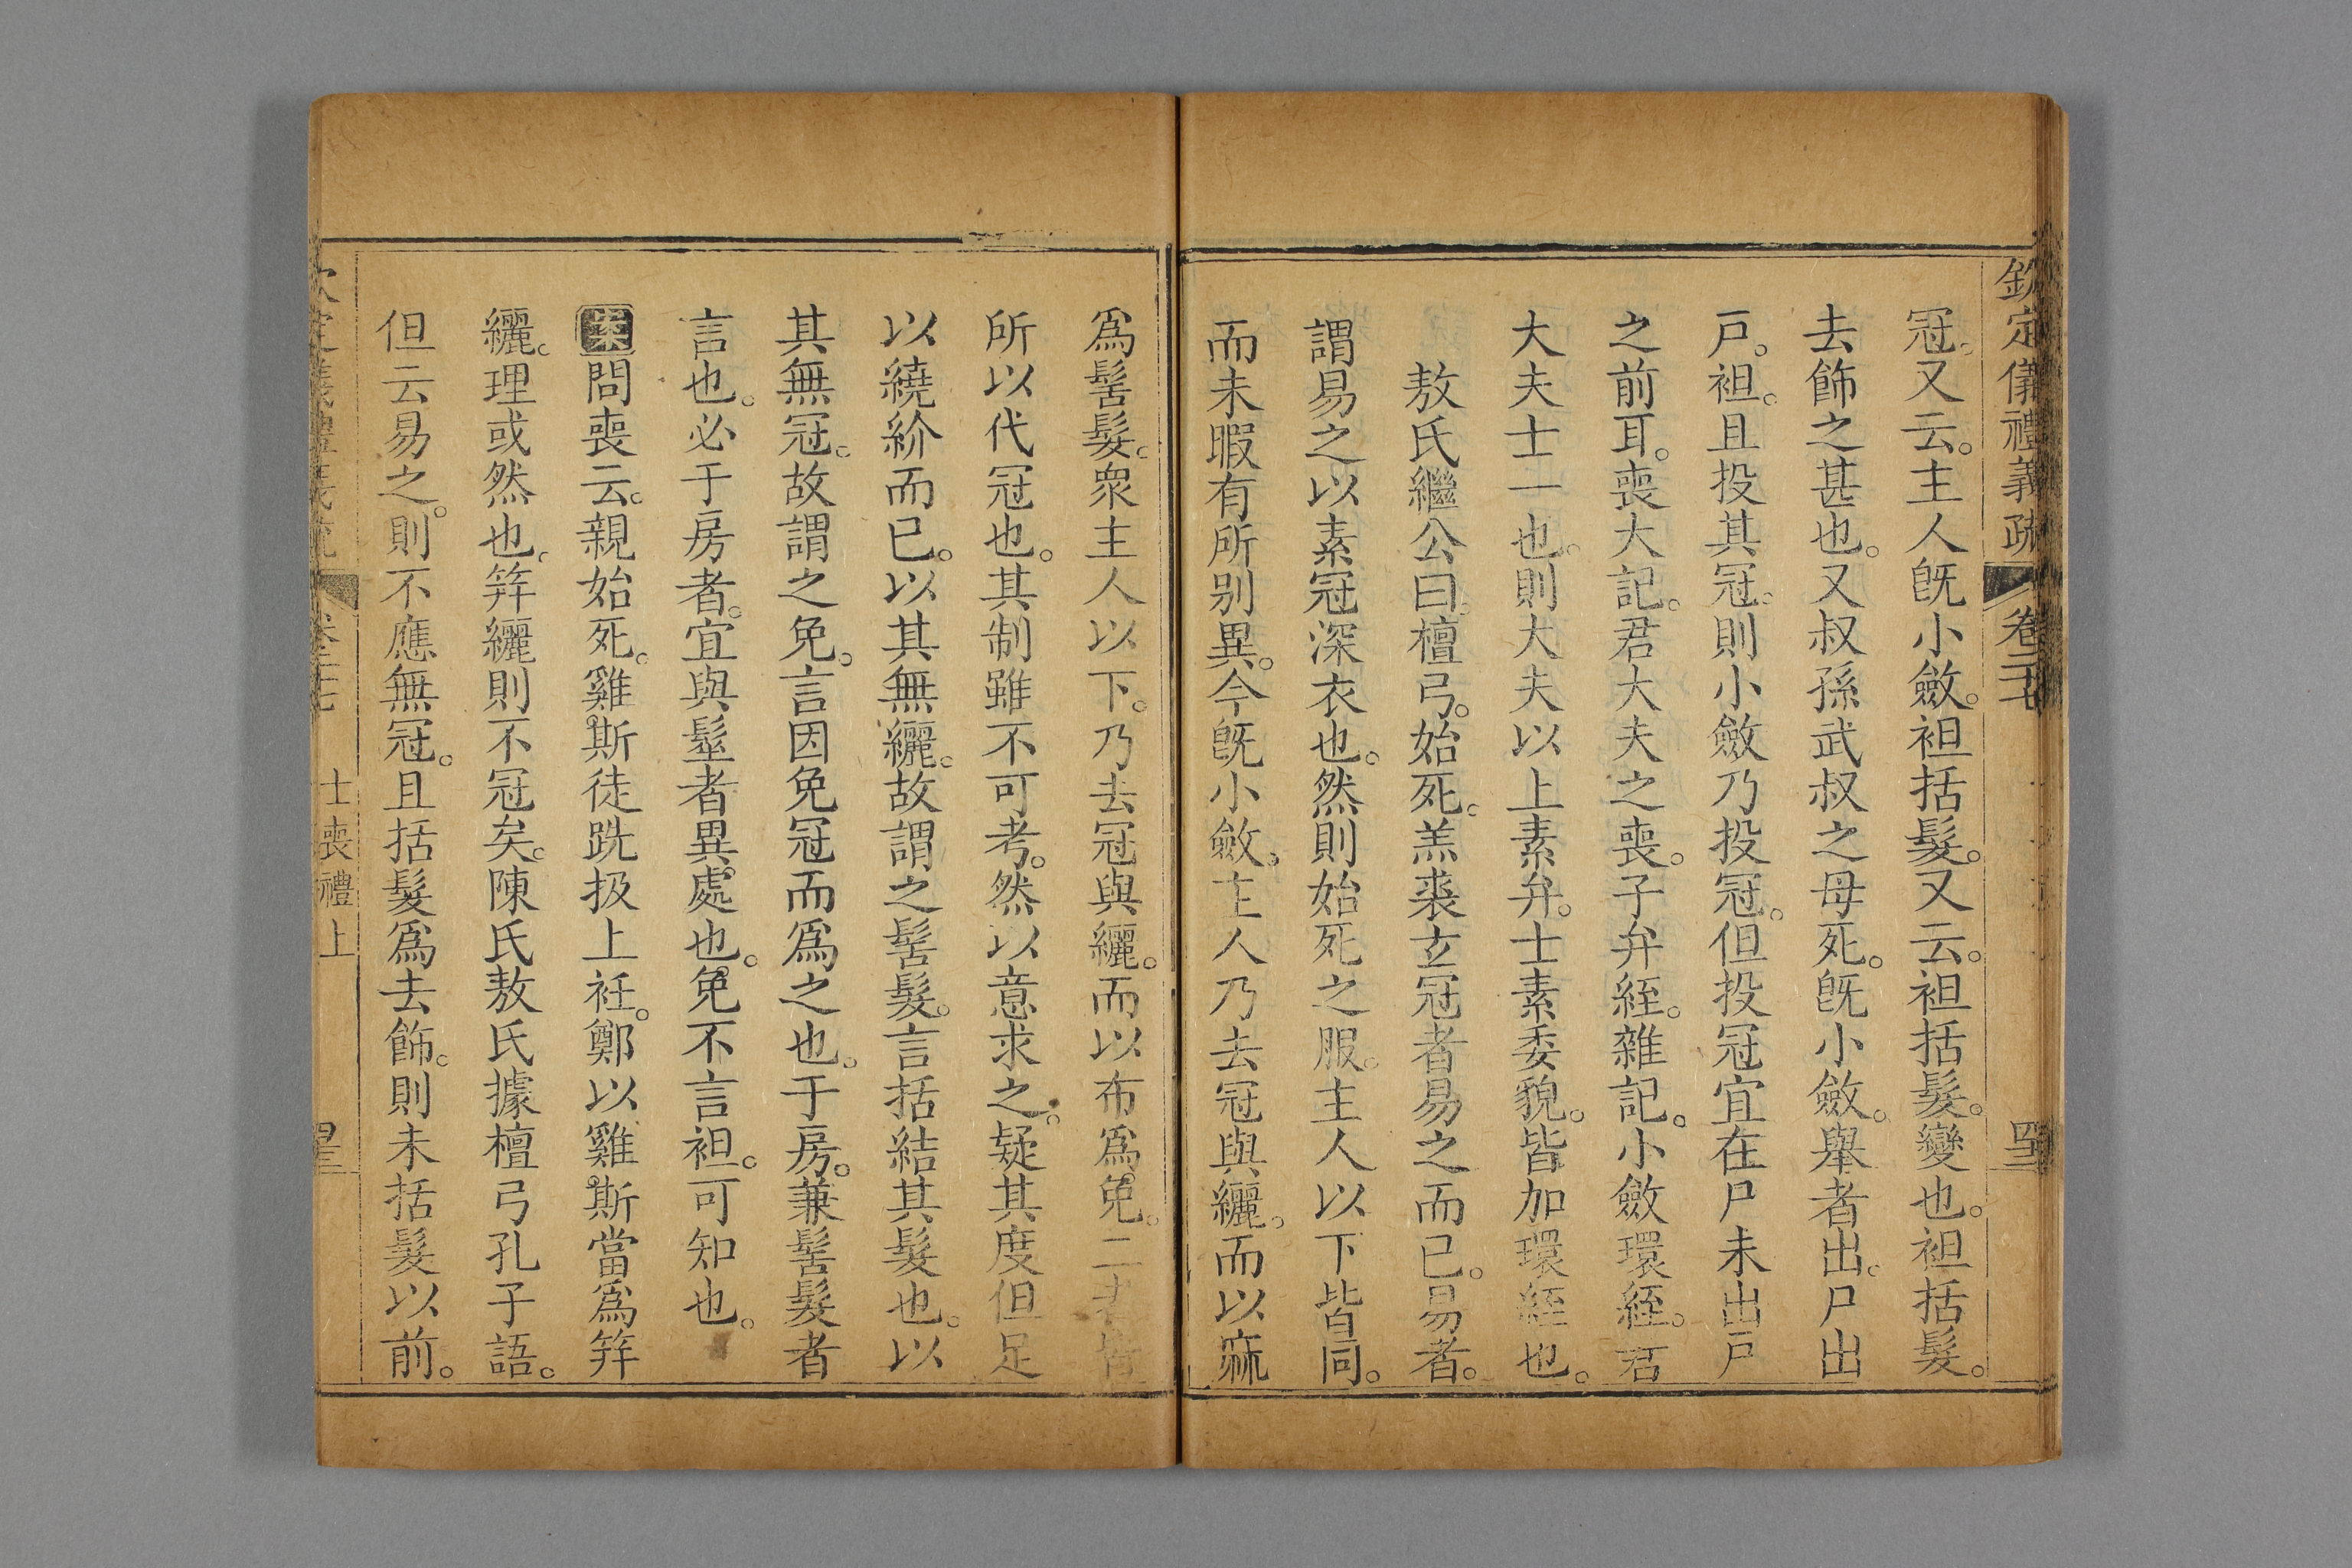 欽定儀禮義疏 卷二十七
冠。又云。主人旣小斂。袒括髮。又云。袒括髮。變也。袒括髮。
去飾之甚也。又叔孫武叔之母死。旣小斂。舉者出。尸出
戶。袒。且投其冠。則小斂乃投冠。但投冠宜在尸未出戶
之前耳。喪大記。君大夫之喪。子弁絰。雜記。小斂環絰。君
大夫士一也。則大夫以上素弁。士素委貌。皆加環絰也。
敖氏繼公曰。檀弓。始死。羔裘玄冠者易之而已。易者。
謂易之以素冠深衣也。然則始死之服。主人以下皆同。
而未暇有所別異。今旣小斂。主人乃去冠與纚。而以麻
爲髻髮。衆主人以下。乃去冠與纚。而以布爲免。二者皆
所以代冠也。其制雖不可考。然以意求之。疑其度但足
以繞紒而已。以其無纚。故謂之髻髮。言括結其髮也。以
其無冠。故謂之免。言因免冠而爲之也。于房。兼髻髮者
言也。必于房者。宜與髽者異處也。免不言袒。可知也。
案問喪云。親始死。雞斯徒跣扱上衽。鄭以雞斯當爲筓
纚。理或然也。筓纚則不冠矣。陳氏敖氏據檀弓孔子語。
但云易之。則不應無冠。且括髮爲去飾。則未括髮以前。
士喪禮上